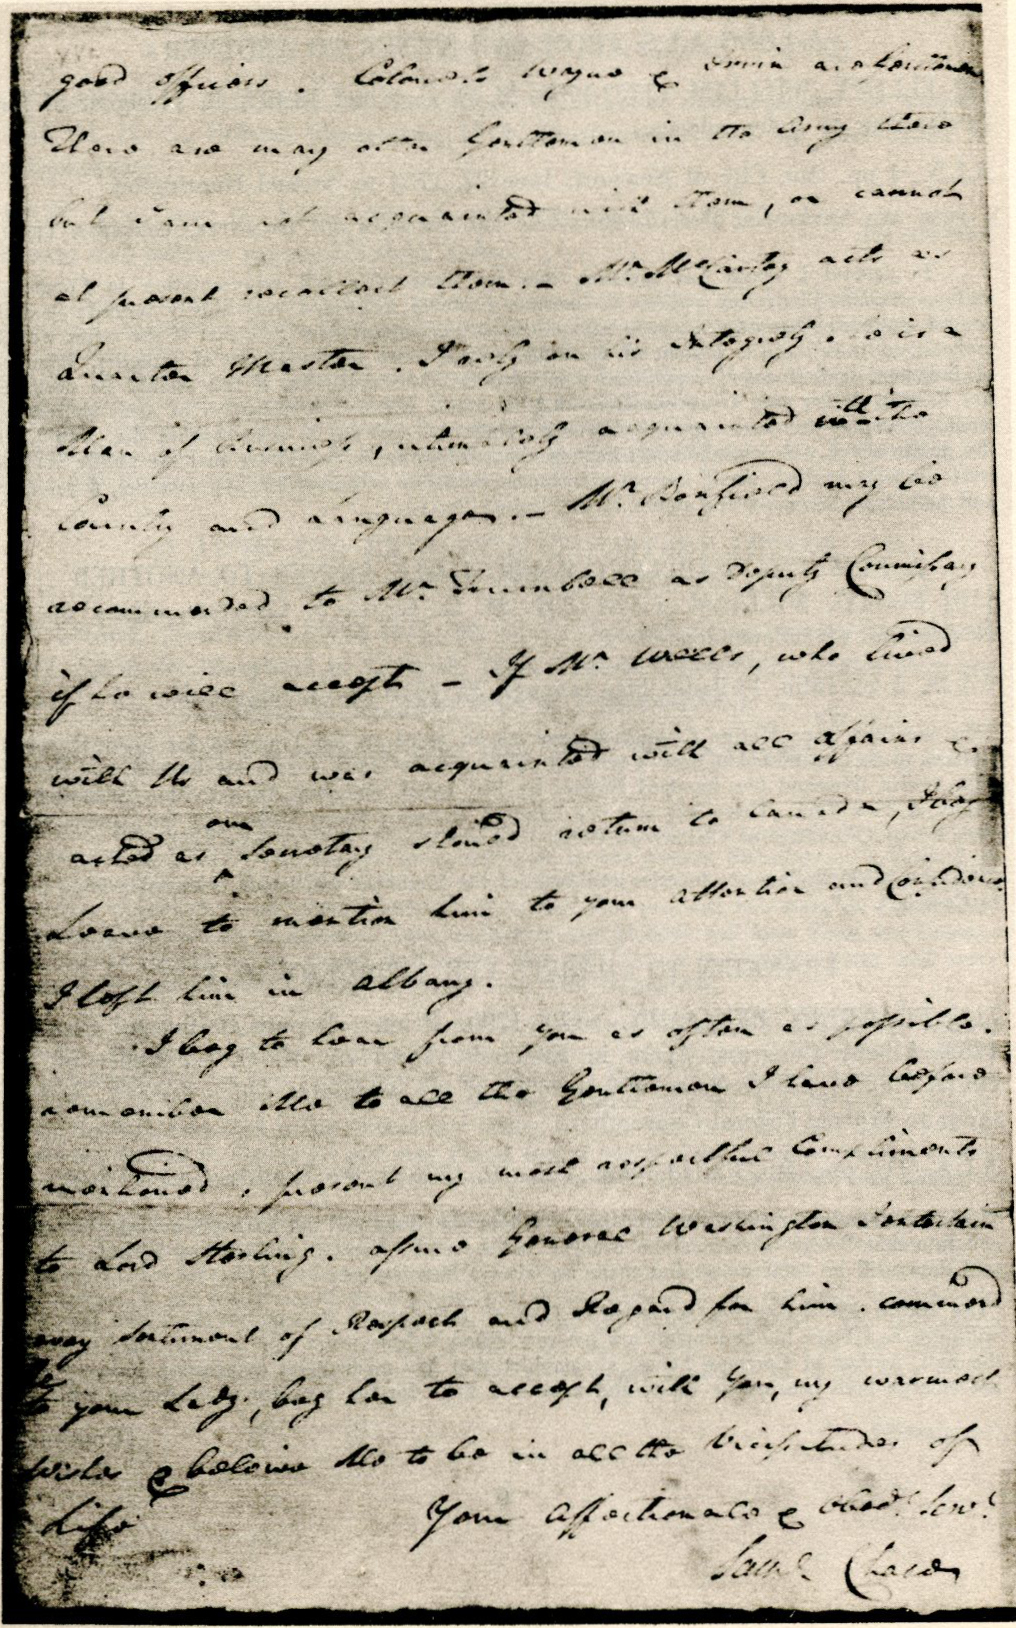 good officers. Colonels Wayne & Irwin are Gentlemen
There are many other Gentlemen in the Army there
but I am not acquainted with them, or cannot
at present recollect them. – Mr. McCartey acts as
Quarter Master. I rely on his Integrity. he is a
Man of Business, intimately acquainted with the
Country and Language. – Mr. Bonfield may be
recommended to Mr. Trumbell as Deputy Commissary
if he will accept – If Mr. Wells, who lived
with Us and was acquainted with all affairs &
acted as our Secretary should return to Canada, I beg
Leave to mention him to your attention and Confidence
I left him in Albany.
I beg to hear from you as often as possible.
remember Me to all the Gentlemen I have before
mentioned, present my most respectful Compliments
to Lord Sterling. assure General Washington I entertain
every sentiment of Respect and Regard for him. commend
to your Lady, beg her to accept, with You, my warmest
Wishes & believe Me to be in all the Vicissitudes of
Life
Your Affectionate & Obedt. Servt.
Saml. Chase